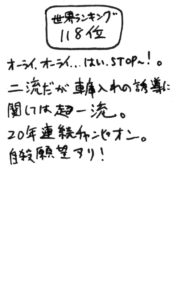 世界ランキング
118位
オーライ、オーライ…はい、STOP〜!。
二流だが車庫入れの誘導に
関しては超一流。
20年連続チャンピオン。
自殺願望アリ!